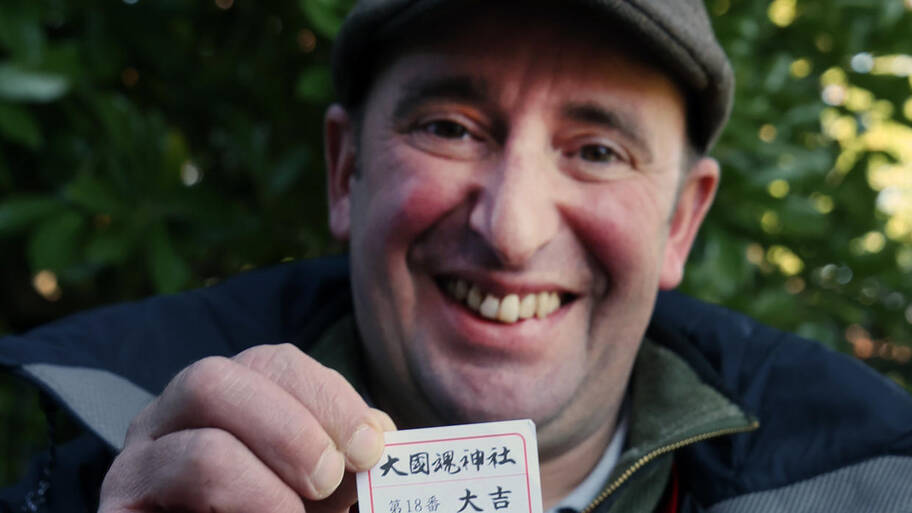 大國魂神社
第18番 大吉